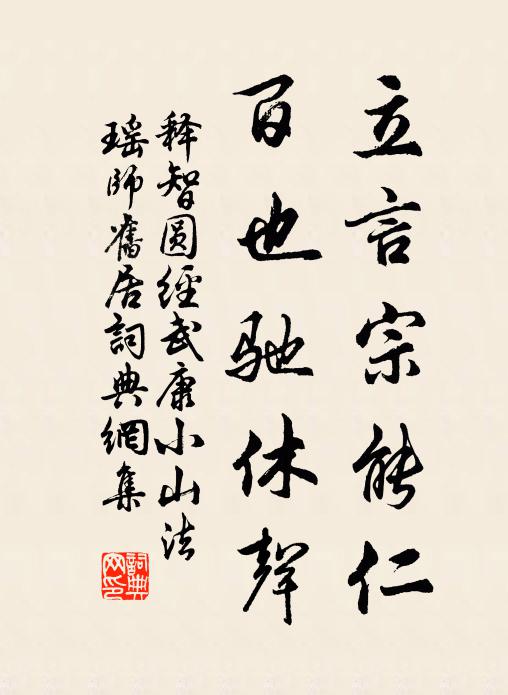 立言宗能仁
百也驰休聲
释智圆經武康小山法
瑶師舊居詞典網集
詞典网印